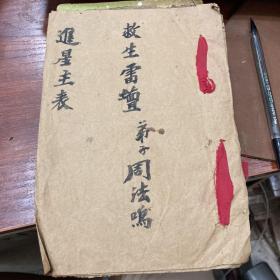 救生雷壇弟子周法鳴
進星主表